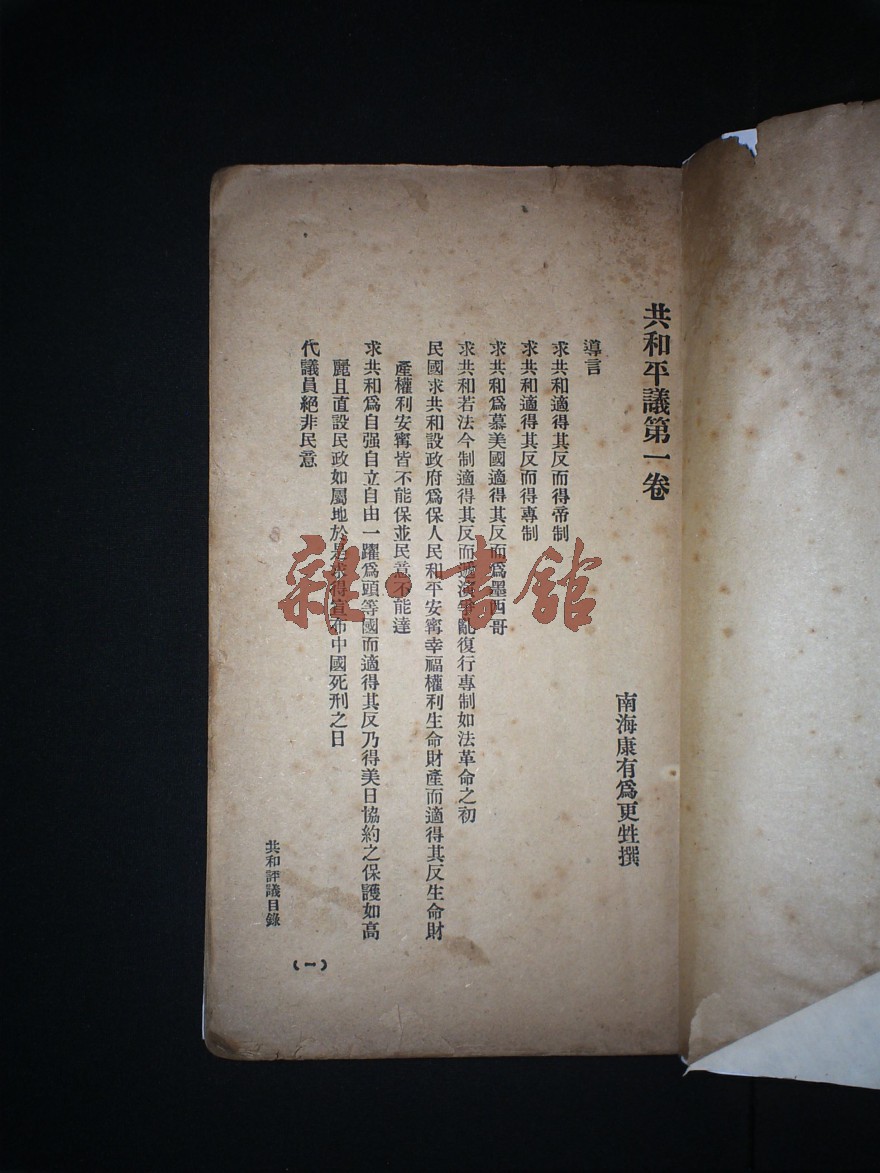 共和平議第一卷
南海康有爲更甡撰
導言
求共和適得其反而得帝制
求共和適得其反而得專制
求共和爲慕美國適得其反而爲墨西哥
求共和若法今制適得其反而遞演爭亂復行專制如法革命之初
民國求共和設政府爲保人民和平安寗幸福權利生命財產而適得其反生命財
產權利安寗皆不能保並民意不能達
求共和爲自强自立自由一躍爲頭等國而適得其反乃得美日協約之保護如高
麗且直設民政如屬地於是求得宣布中國死刑之日
代議員絕非民意
共和評議目錄
(一)
雜·書館